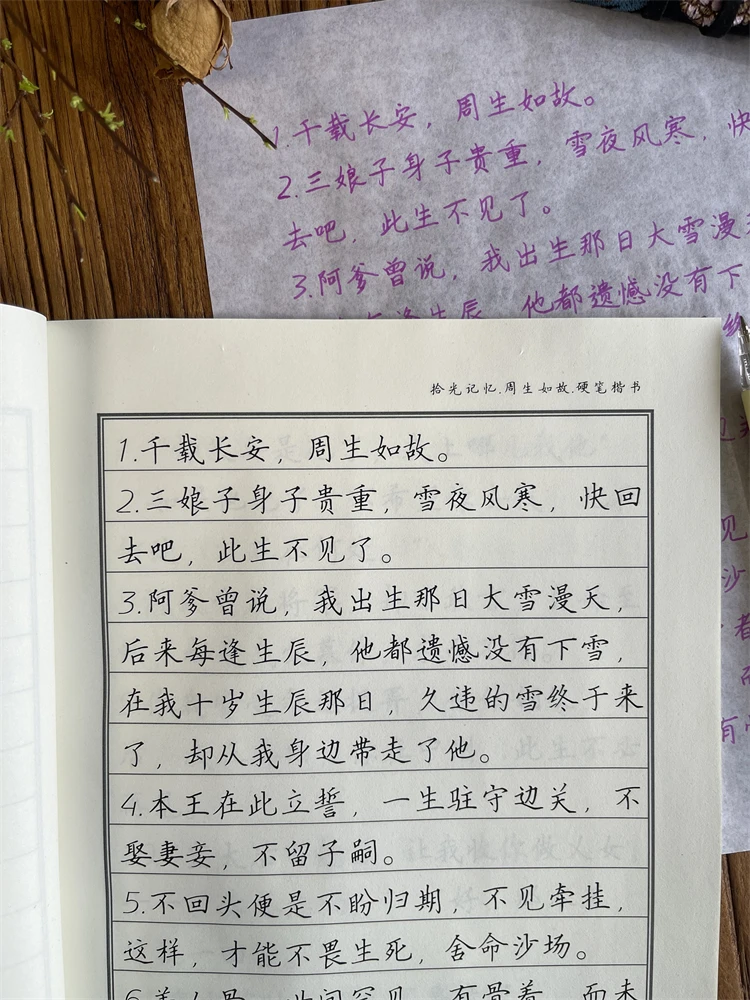 1.千载长安，周生如故。
2.三娘子身子贵重，雪夜风寒，快
去吧，此生不见了。
3.阿爹曾说，我出生那日大雪漫天
生辰，他都遗憾没有下
拾光记忆.周生如故.硬笔楷书
1.千载长安，周生如故。
2.三娘子身子贵重，雪夜风寒，快回
去吧，此生不见了。
3.阿爹曾说，我出生那日大雪漫天，
后来每逢生辰，他都遗憾没有下雪，
在我十岁生辰那日，久违的雪终于来
了，却从我身边带走了他。
4.本王在此立誓，一生驻守边关，不
娶妻妾，不留子嗣。
5.不回头便是不盼归期，不见牵挂，
这样，才能不畏生死，舍命沙场。